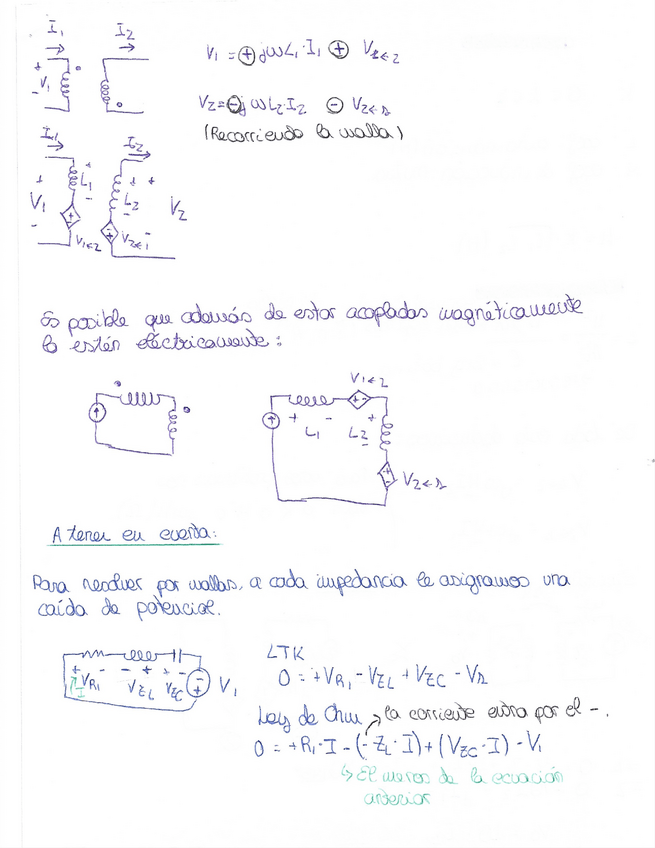 I₁ I₂
+ V₁ -
V₁ = ⊕ jωL₁·I₁ ⊕ V₁←₂
V₂ = ⊖ jωL₂·I₂ ⊖ V₂←₁
(Recorriendo la malla)
I₁ I₂
+ V₁ - + L₁ - + L₂ - + V₂ -
V₁←₂ V₂←₁
Es posible que además de estar acopladas magnéticamente
lo estén eléctricamente:
V₁←₂
+ L₁ - + L₂ -
V₂←₁
A tener en cuenta:
Para resolver por mallas, a cada impedancia le asignamos una
caída de potencial.
+ V_R₁ - - V_ZL + + V_ZC - V₁
I
LTK
0 = +V_R₁ - V_ZL + V_ZC - V₁
Ley de Ohm → la corriente entra por el -.
0 = +R₁·I - (-Z_L·I) + (V_ZC·I) - V₁
↳ El menos de la ecuación
anterior